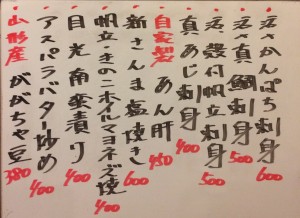 活かんぱち刺身 600
活真鯛刺身 500
活殻付帆立刺身 500
活真あじ刺身 400
自家製 あん肝 450
新さんま塩焼き 600
帆立・きのこホイルマヨネーズ焼 400
目光南蛮漬け 400
アスパラバター炒め 400
山形産 だだちゃ豆 380